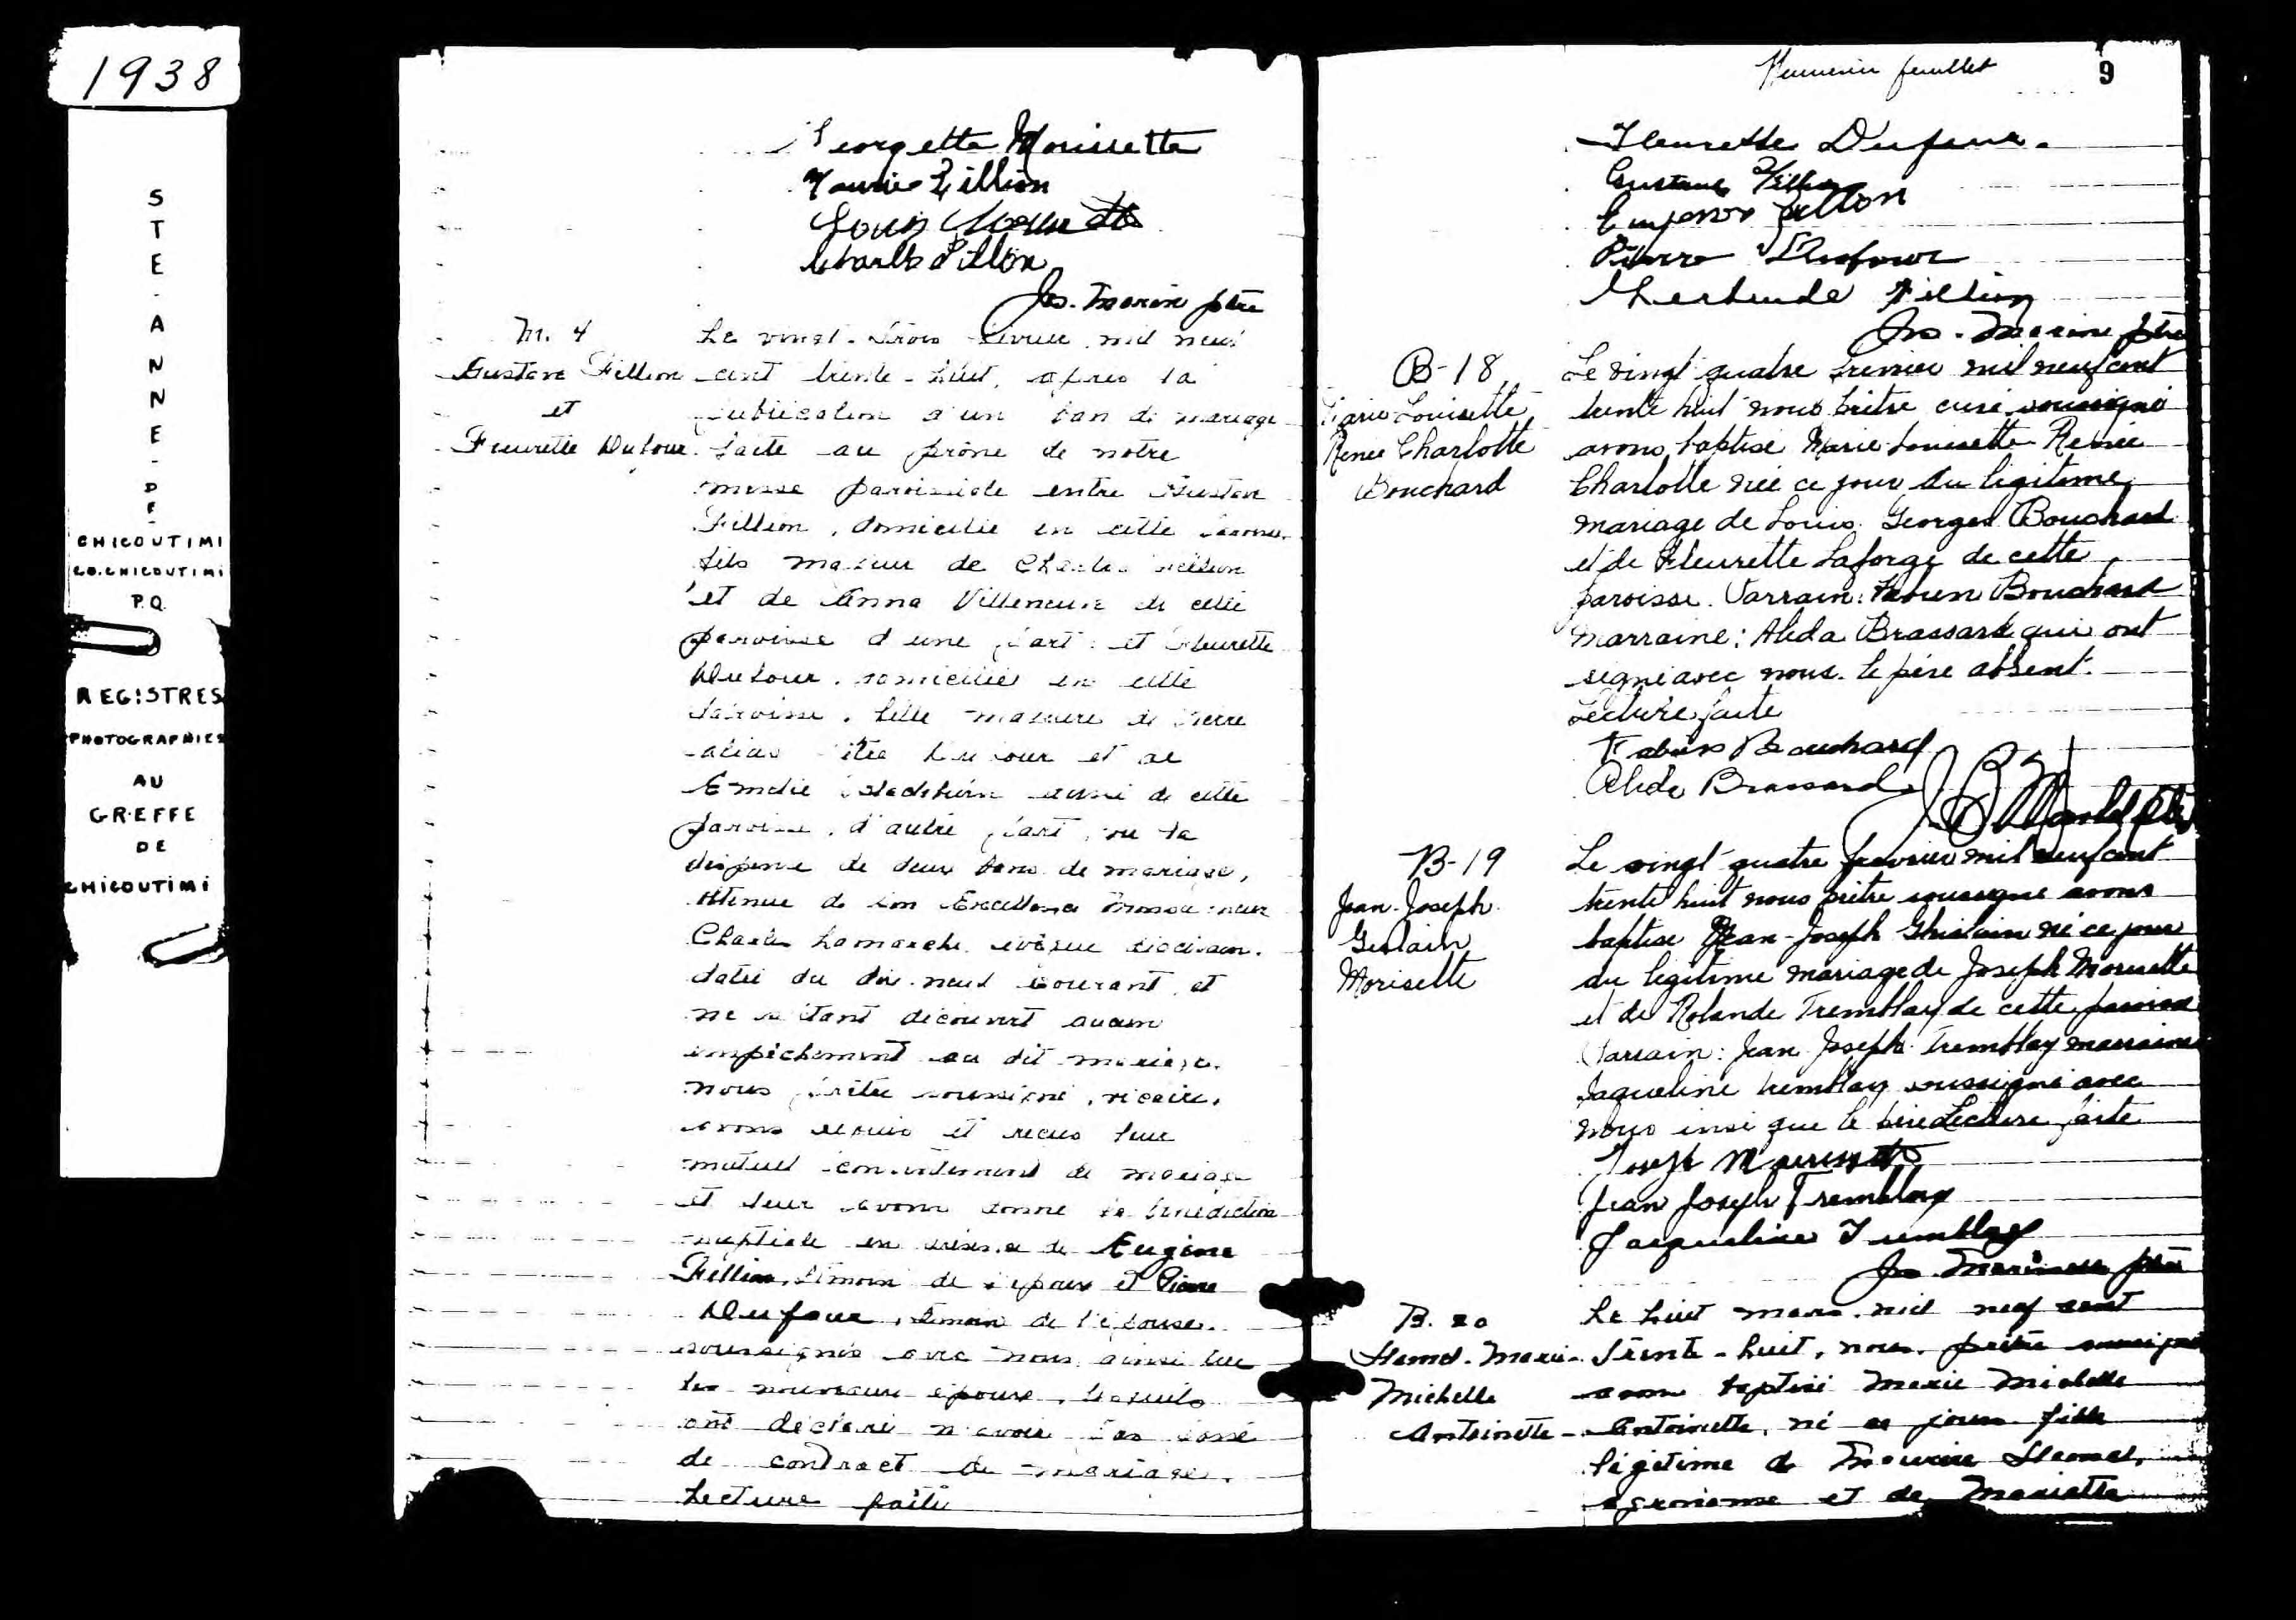 1938
STE-ANNE-DE-
CHICOUTIMI
CO. CHICOUTIMI
P.Q.
REGISTRES
PHOTOGRAPHIÉS
AU
GREFFE
DE
CHICOUTIMI
Georgette Morissette
Fillion
Louis
Charles Fillion
Jos. Marin ptre
M. 4
Gustave Fillion
et
Fleurette Dufour
Le vingt-trois février mil neuf
cent trente-huit, après la
publication d'un ban de mariage
faite au prône de notre
messe paroissiale entre Gustave
Fillion, domicilié en cette paroisse,
fils majeur de Charles Fillion
et de Anna Villeneuve de cette
paroisse d'une part; et Fleurette
Dufour, domiciliée en cette
paroisse, fille majeure de Pierre
alias Dufour et de
Emelie aussi de cette
paroisse, d'autre part, vu la
dispense de deux bans de mariage,
obtenue de Son Excellence Monseigneur
Charles Lamarche, évêque diocésain,
datée du dix-neuf courant, et
ne s'étant découvert aucun
empêchement au dit mariage,
nous prêtre soussigné, vicaire,
avons requis et reçu leur
mutuel consentement de mariage
et leur avons donné la bénédiction
nuptiale en présence de Eugène
Fillion, témoin de l'époux et Pierre
Dufour, témoin de l'épouse,
soussignés avec nous ainsi que
les nouveaux époux, lesquels
ont déclaré n'avoir pas passé
de contract de mariage.
Lecture faite
feuillet 9
Fleurette Dufour.
Gustave Fillion
Eugène Fillion
Pierre Dufour
Fillion
Jos. Marin ptre
B-18
Marie Louisette
Renée Charlotte
Bouchard
Le vingt quatre février mil neuf cent
trente huit nous prêtre curé soussigné
avons baptisé Marie Louisette Renée
Charlotte née ce jour du légitime
mariage de Louis Georges Bouchard
et de Fleurette Laforge de cette
paroisse. Parrain: Bouchard
marraine: Alida Brassard qui ont
signé avec nous. le père absent.
Lecture faite
Bouchard
Alida Brassard
B-19
Jean-Joseph
Geslain
Morisette
Le vingt quatre février mil neuf cent
trente huit nous prêtre soussigné avons
baptisé Jean-Joseph Ghislain né ce jour
du légitime mariage de Joseph Morissette
et de Rolande Tremblay de cette paroisse
Parrain: Jean Joseph Tremblay marraine
Jaqueline Tremblay soussigné avec
nous insi que le père Lecture faite
Joseph Morissette
Jean Joseph Tremblay
Jacqueline Tremblay
ptre
B. 20
Marie-
Michelle
Antoinette
Le huit mars mil neuf cent
trente-huit, nous, prêtre soussigné
avons baptisé Marie Michelle
Antoinette, né ce jour fille
légitime de Maurice
agronome et de Mariette